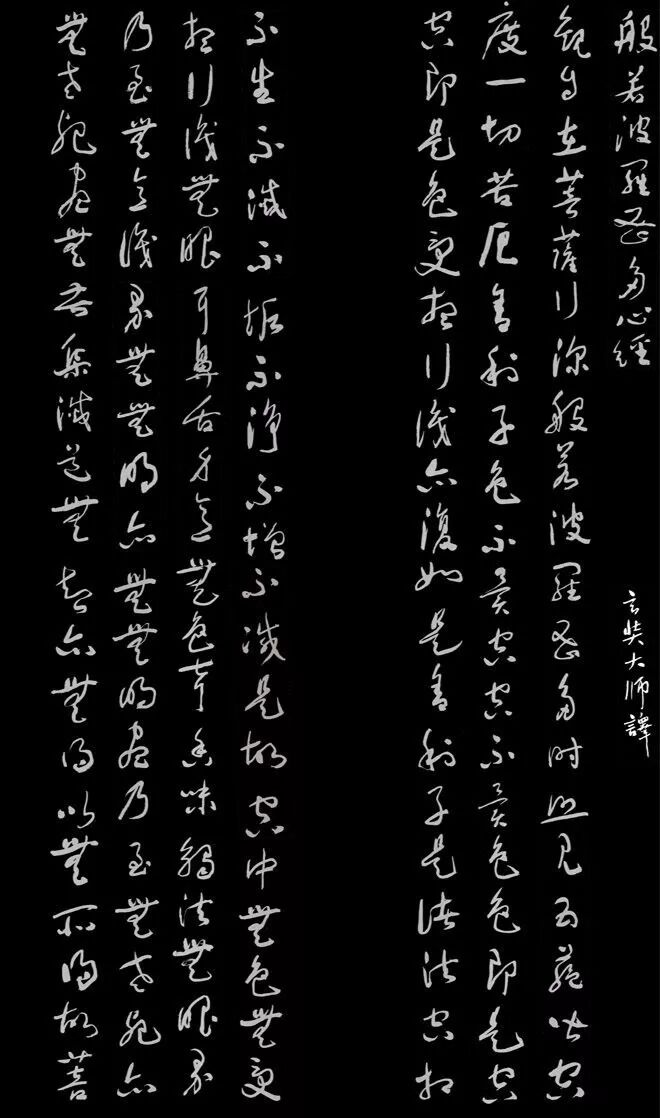 般若波羅蜜多心經
玄奘大師譯
觀自在菩薩行深般若波羅蜜多時照見五蘊皆空
度一切苦厄舍利子色不異空空不異色色即是空
空即是色受想行識亦復如是舍利子是諸法空相
不生不滅不垢不淨不增不減是故空中無色無受
想行識無眼耳鼻舌身意無色聲香味觸法無眼界
乃至無意識界無無明亦無無明盡乃至無老死亦
無老死盡無苦集滅道無智亦無得以無所得故菩